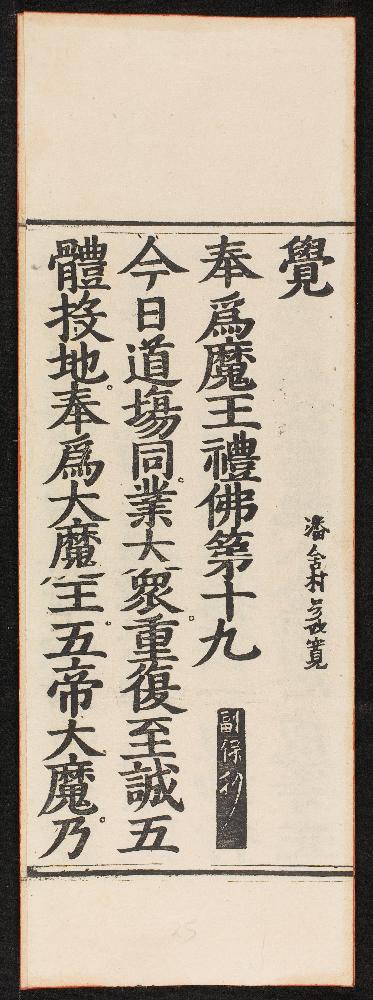 覺
潘舍村
奉爲魔王禮佛第十九
副保
今日道場同業大衆重復至誠五
體投地奉爲大魔王五帝大魔乃